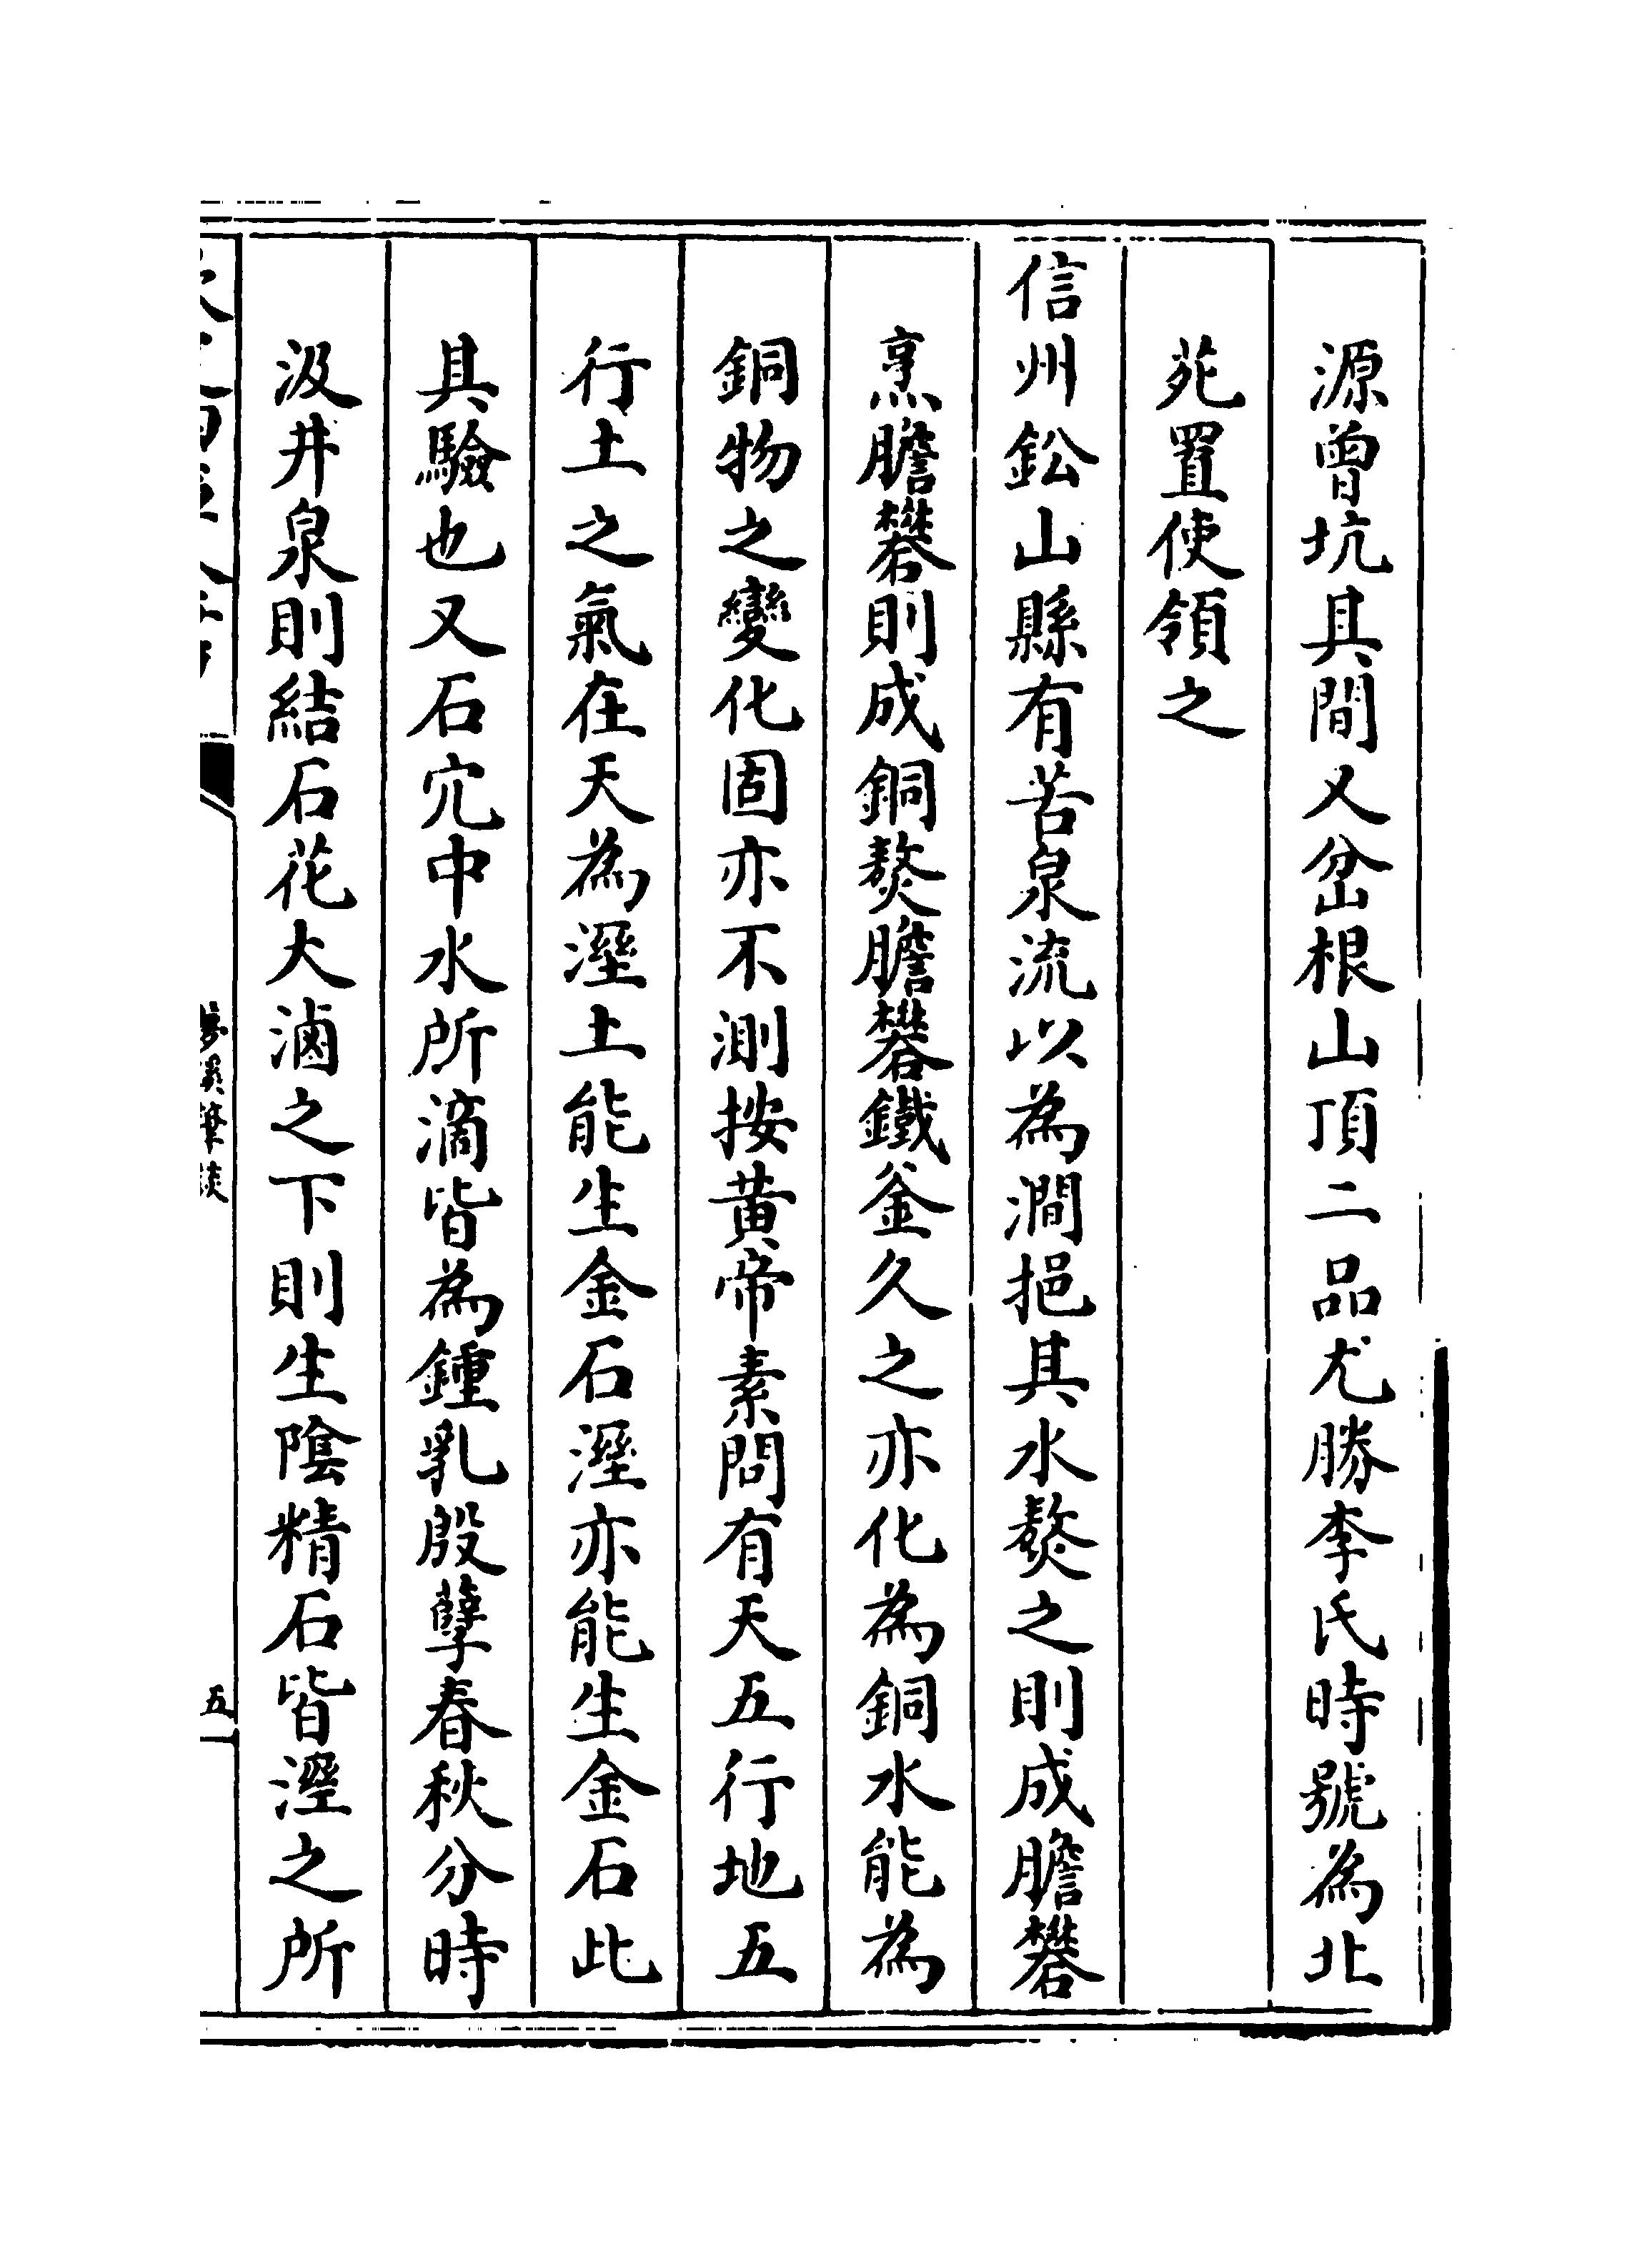 源曾坑其間又岔根山頂二品尤勝李氏時號為北
苑置使領之
信州鈆山縣有苦泉流以為澗挹其水熬之則成膽礬
烹膽礬則成銅熬膽礬鐵釡久之亦化為銅水能為
銅物之變化固亦不測按黃帝素問有天五行地五
行土之氣在天為溼土能生金石溼亦能生金石此
其驗也又石穴中水所滴皆為鍾乳殷孽春秋分時
汲井泉則結石花大滷之下則生陰精石皆溼之所
夢溪筆談
五